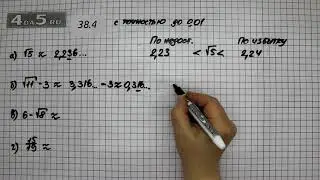 4DA5.RU
38.4 с точностью до 0,01
По недост. По избытку
а) √5 ≈ 2,236... 2,23 < √5 < 2,24
б) √11 - 3 ≈ 3,316... - 3 ≈ 0,316...
в) 6 - √8 ≈